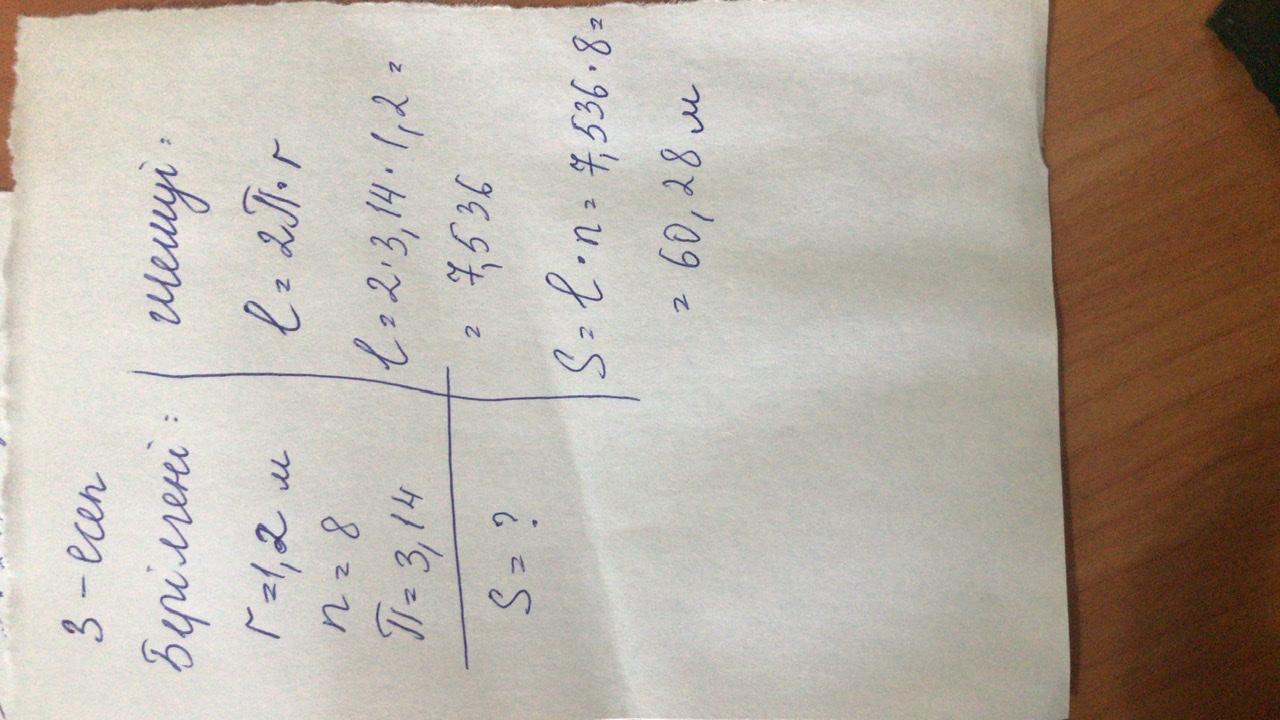 3-есеп
Берілгені:
r=1,2 м
n=8
π=3,14
S=?
шешуі:
l=2π·r
l=2·3,14·1,2=
=7,536
S=l·n=7,536·8=
=60,28 м